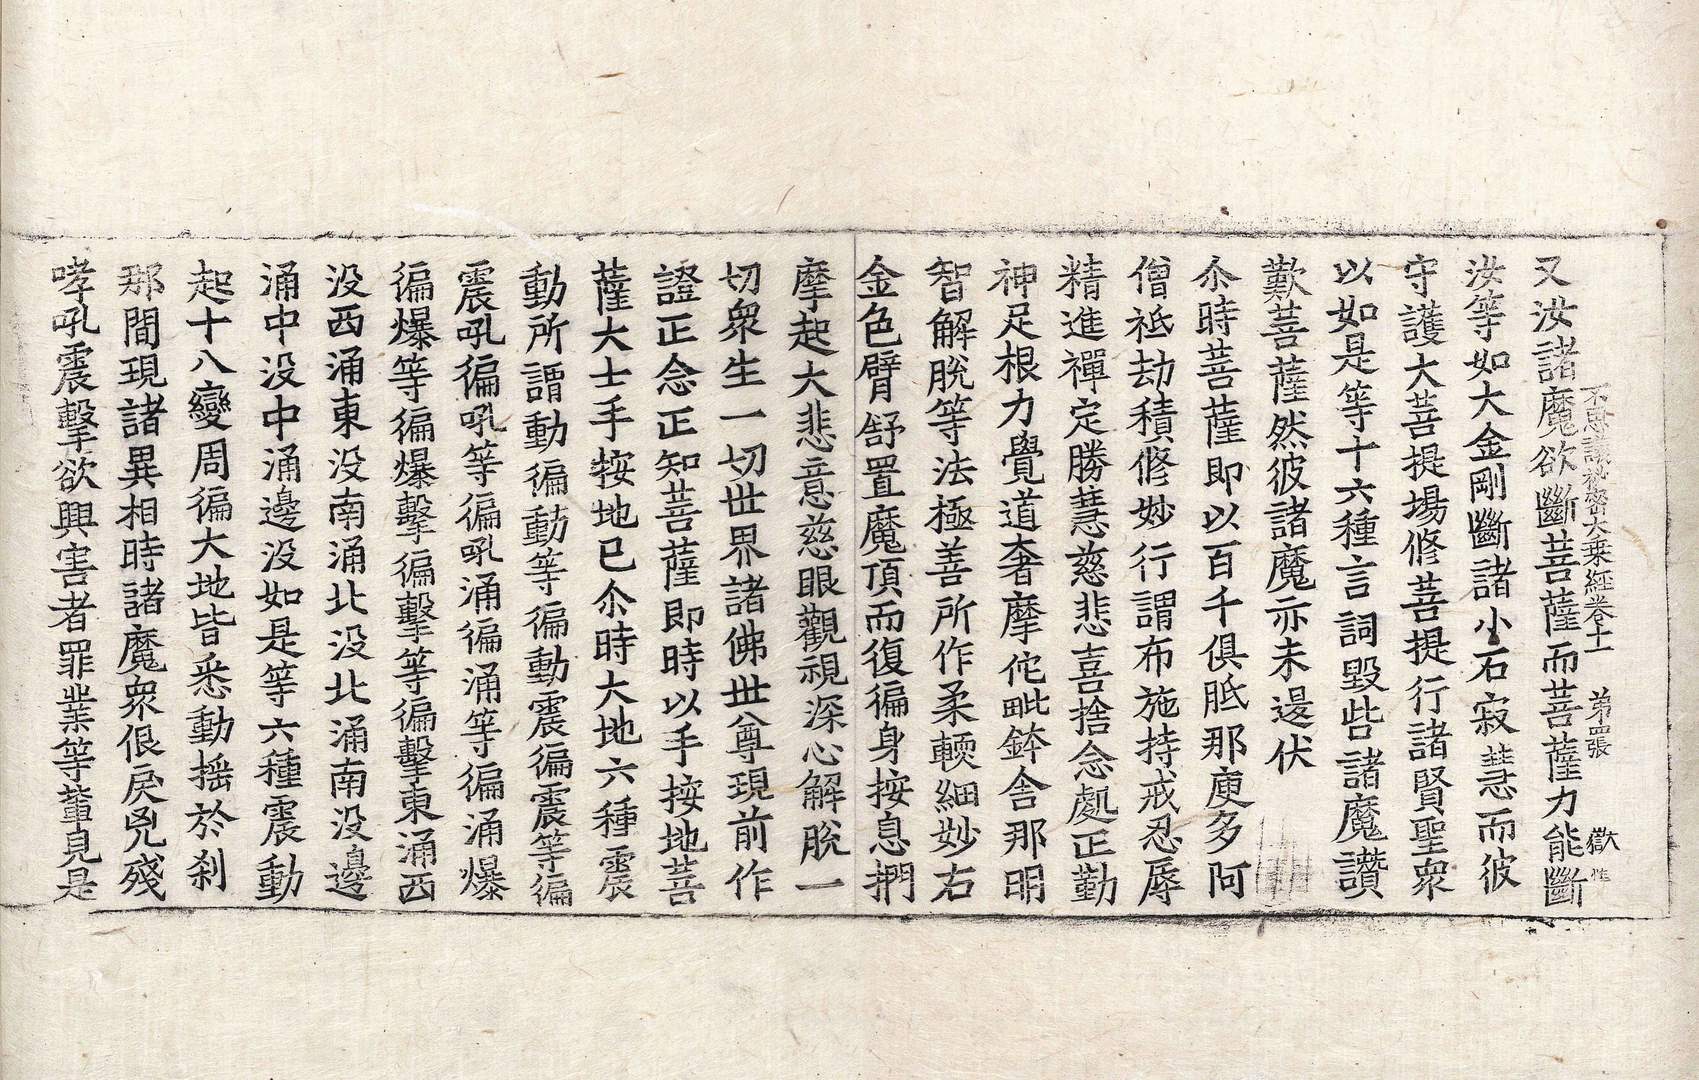 不思議秘密大乘經卷十一　第四張　獻
又汝諸魔欲斷菩薩而菩薩力能斷
汝等如大金剛斷諸小石寂慧而彼
守護大菩提場修菩提行諸賢聖衆
以如是等十六種言詞毀呰諸魔讚
歎菩薩然彼諸魔亦未退伏
尒時菩薩即以百千俱胝那庾多阿
僧祇劫積修妙行謂布施持戒忍辱
精進禪定勝慧慈悲喜捨念處正勤
神足根力覺道奢摩佗毗鉢舍那明
智解脫等法極善所作柔輭細妙右
金色臂舒置魔頂而復徧身按息捫
摩起大悲意慈眼觀視深心解脫一
切衆生一切世界諸佛世尊現前作
證正念正知菩薩即時以手按地菩
薩大士手按地已尒時大地六種震
動所謂動徧動等徧動震徧震等徧
震吼徧吼等徧吼涌徧涌等徧涌爆
徧爆等徧爆擊徧擊等徧擊東涌西
没西涌東没南涌北没北涌南没邊
涌中没中涌邊没如是等六種震動
起十八變周徧大地皆悉動搖於刹
那間現諸異相時諸魔衆佷戾兇殘
哮吼震擊欲興害者罪業等輩見是